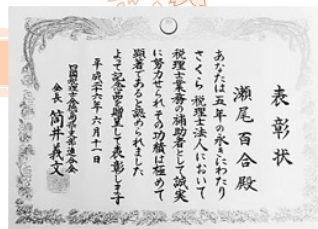 表彰状
瀬尾百合殿
あなたは五年の永きにわたり
さくら税理士法人において
税理士業務の補助者として誠実
に努力せられその功績は極めて
顕著であると認められました
よって記念品を贈呈して表彰します
平成二十六年六月十一日
会長 筒井義文